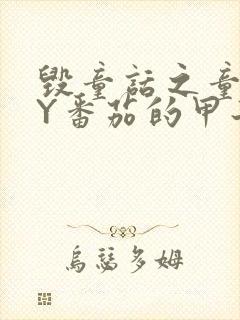 毁童话之童
Y番茄的甲
乌瑟多姆